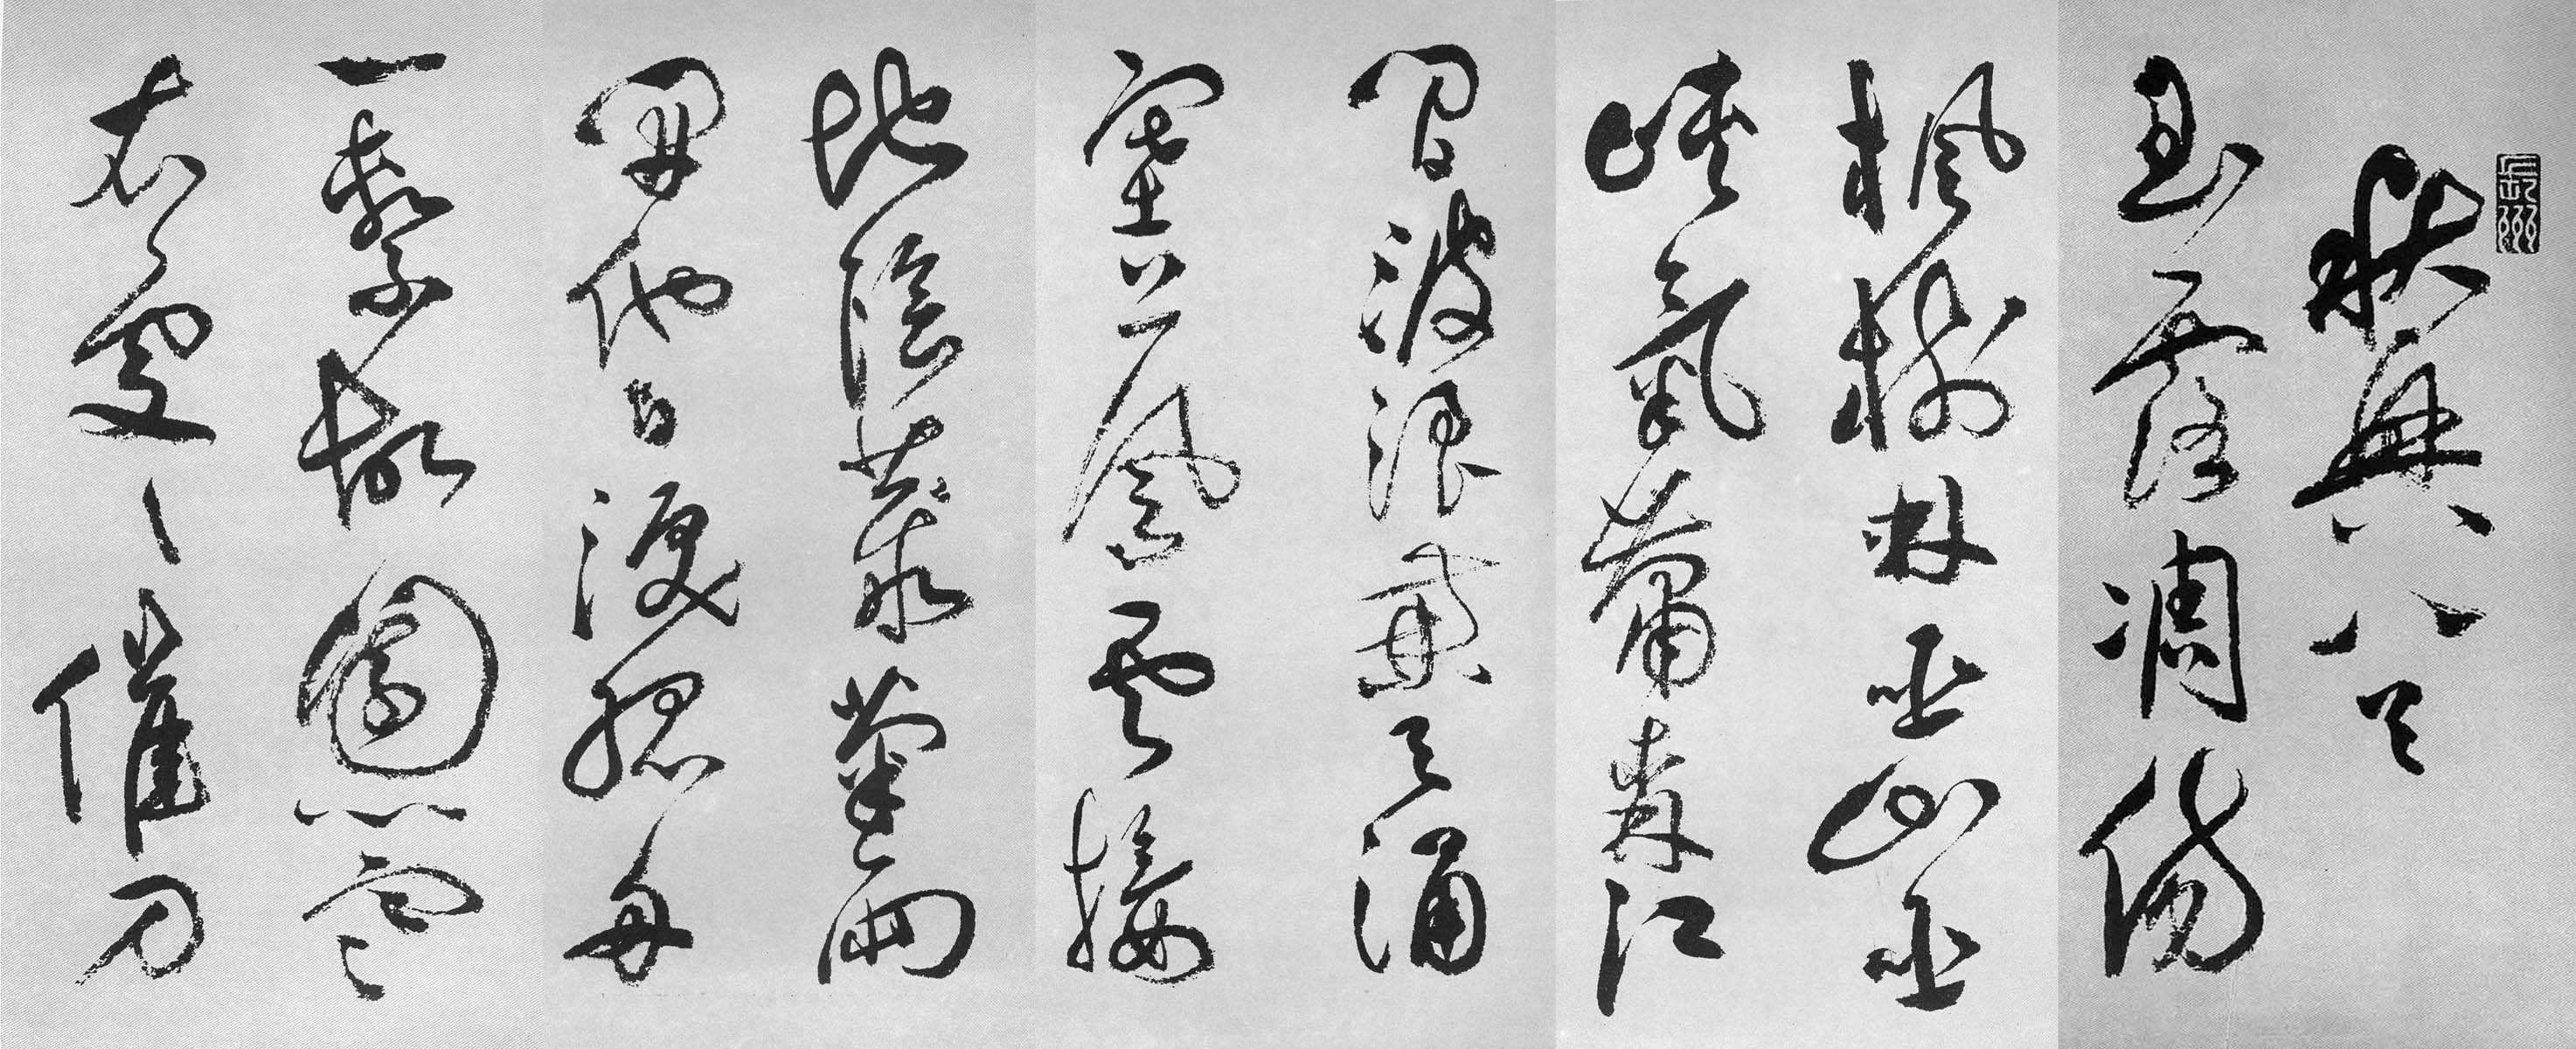 秋興八首
玉露凋傷
楓樹林巫山巫
峽氣蕭森江
間波浪兼天湧
塞上風雲接
地陰叢菊兩
開他日淚孤舟
一繫故園心寒
衣處〻催刀